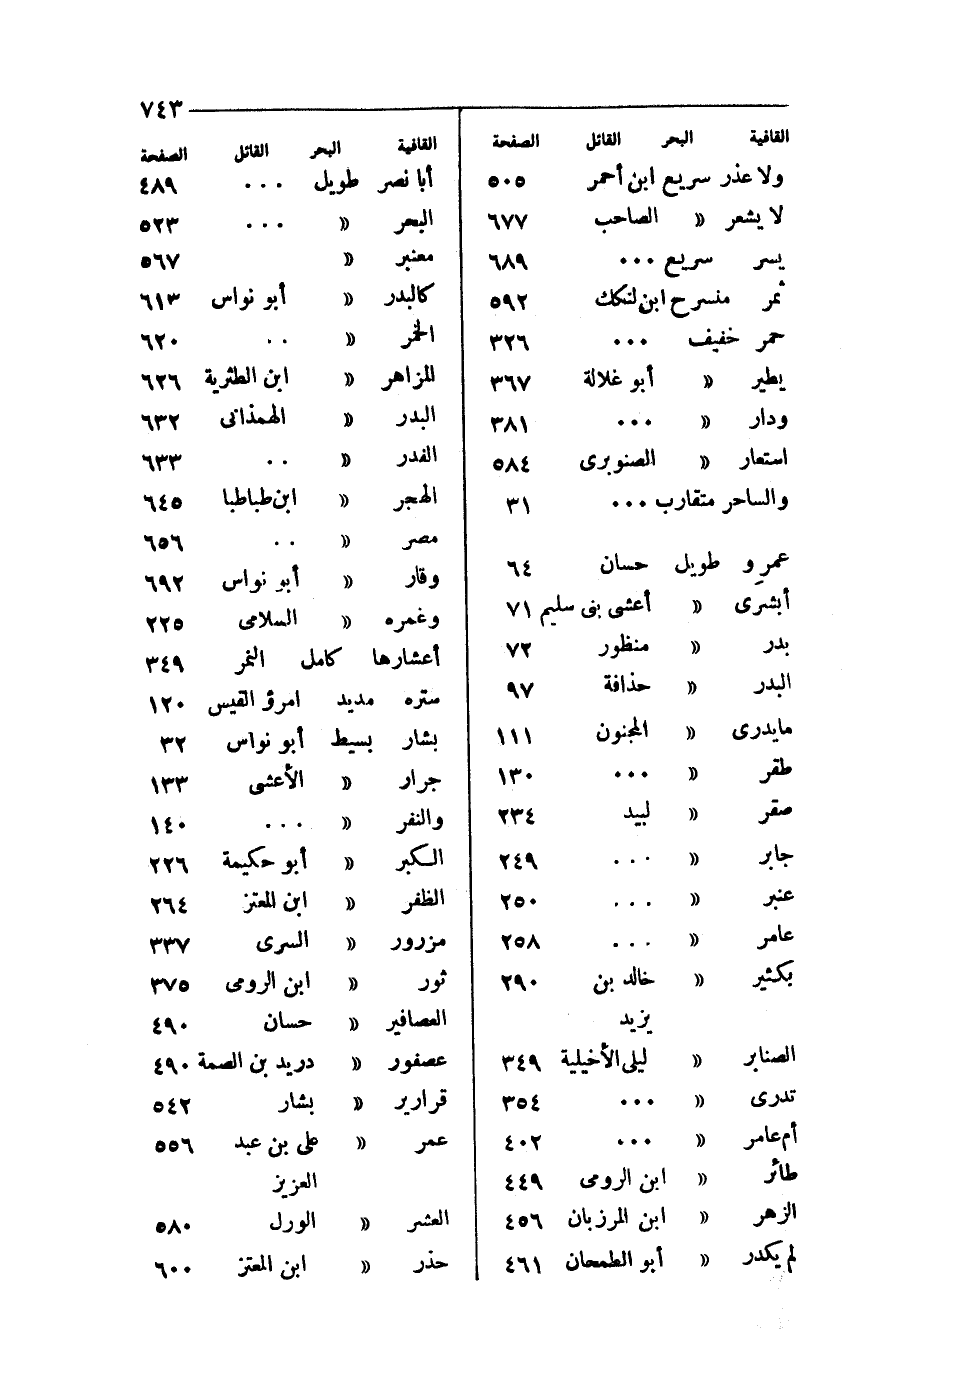 ٧٤٣
القافية البحر القائل الصفحة
ولا عذر سريع ابن أحمر ٥٠٥
لا يشعر » الصاحب ٦٧٧
يسر سريع ... ٦٨٩
ثمر منسرح ابن لنكك ٥٩٢
حمر خفيف ... ٣٢٦
يطير » أبو غلالة ٣٦٧
ودار » ... ٣٨١
استعار » الصنوبرى ٥٨٤
والساحر متقارب ... ٣١
عمرو طويل حسان ٦٤
أبشرى » أعشى بنى سليم ٧١
بدر » منظور ٧٢
البدر » حذافة ٩٧
مايدرى » المجنون ١١١
طقر » ... ١٣٠
صقر » لبيد ٢٣٤
جابر » ... ٢٤٩
عنبر » ... ٢٥٠
عامر » ... ٢٥٨
بكثير » خالد بن ٢٩٠
يزيد
الصنابر » ليلى الأخيلية ٣٤٩
تدرى » ... ٣٥٤
أم عامر » ... ٤٠٢
طائر » ابن الرومى ٤٤٩
الزهر » ابن المرزبان ٤٥٦
لم يكدر » أبو الطمحان ٤٦١
القافية البحر القائل الصفحة
أبا نصر طويل ... ٤٨٩
البحر » ... ٥٢٣
معنبر » ٥٦٧
كالبدر » أبو نواس ٦١٣
الخمر » .. ٦٢٠
المزاهر » ابن الطثرية ٦٢٦
البدر » الهمذانى ٦٣٢
الفدر » .. ٦٣٣
الهجر » ابن طباطبا ٦٤٥
مصر » .. ٦٥٦
وقار » أبو نواس ٦٩٢
وغمره » السلامى ٢٢٥
أعشارها كامل النمر ٣٤٩
ستره مديد امرؤ القيس ١٢٠
بشار بسيط أبو نواس ٣٢
جرار » الأعشى ١٣٣
والنفر » ... ١٤٠
الكبر » أبو حكيمة ٢٢٦
الظفر » ابن المعتز ٢٦٤
مزرور » السرى ٣٣٧
ثور » ابن الرومى ٣٧٥
العصافير » حسان ٤٩٠
عصفور » دريد بن الصمة ٤٩٠
قرارير » بشار ٥٤٢
عمر » على بن عبد ٥٥٦
العزيز
العشر » الورل ٥٨٠
حذر » ابن المعتز ٦٠٠